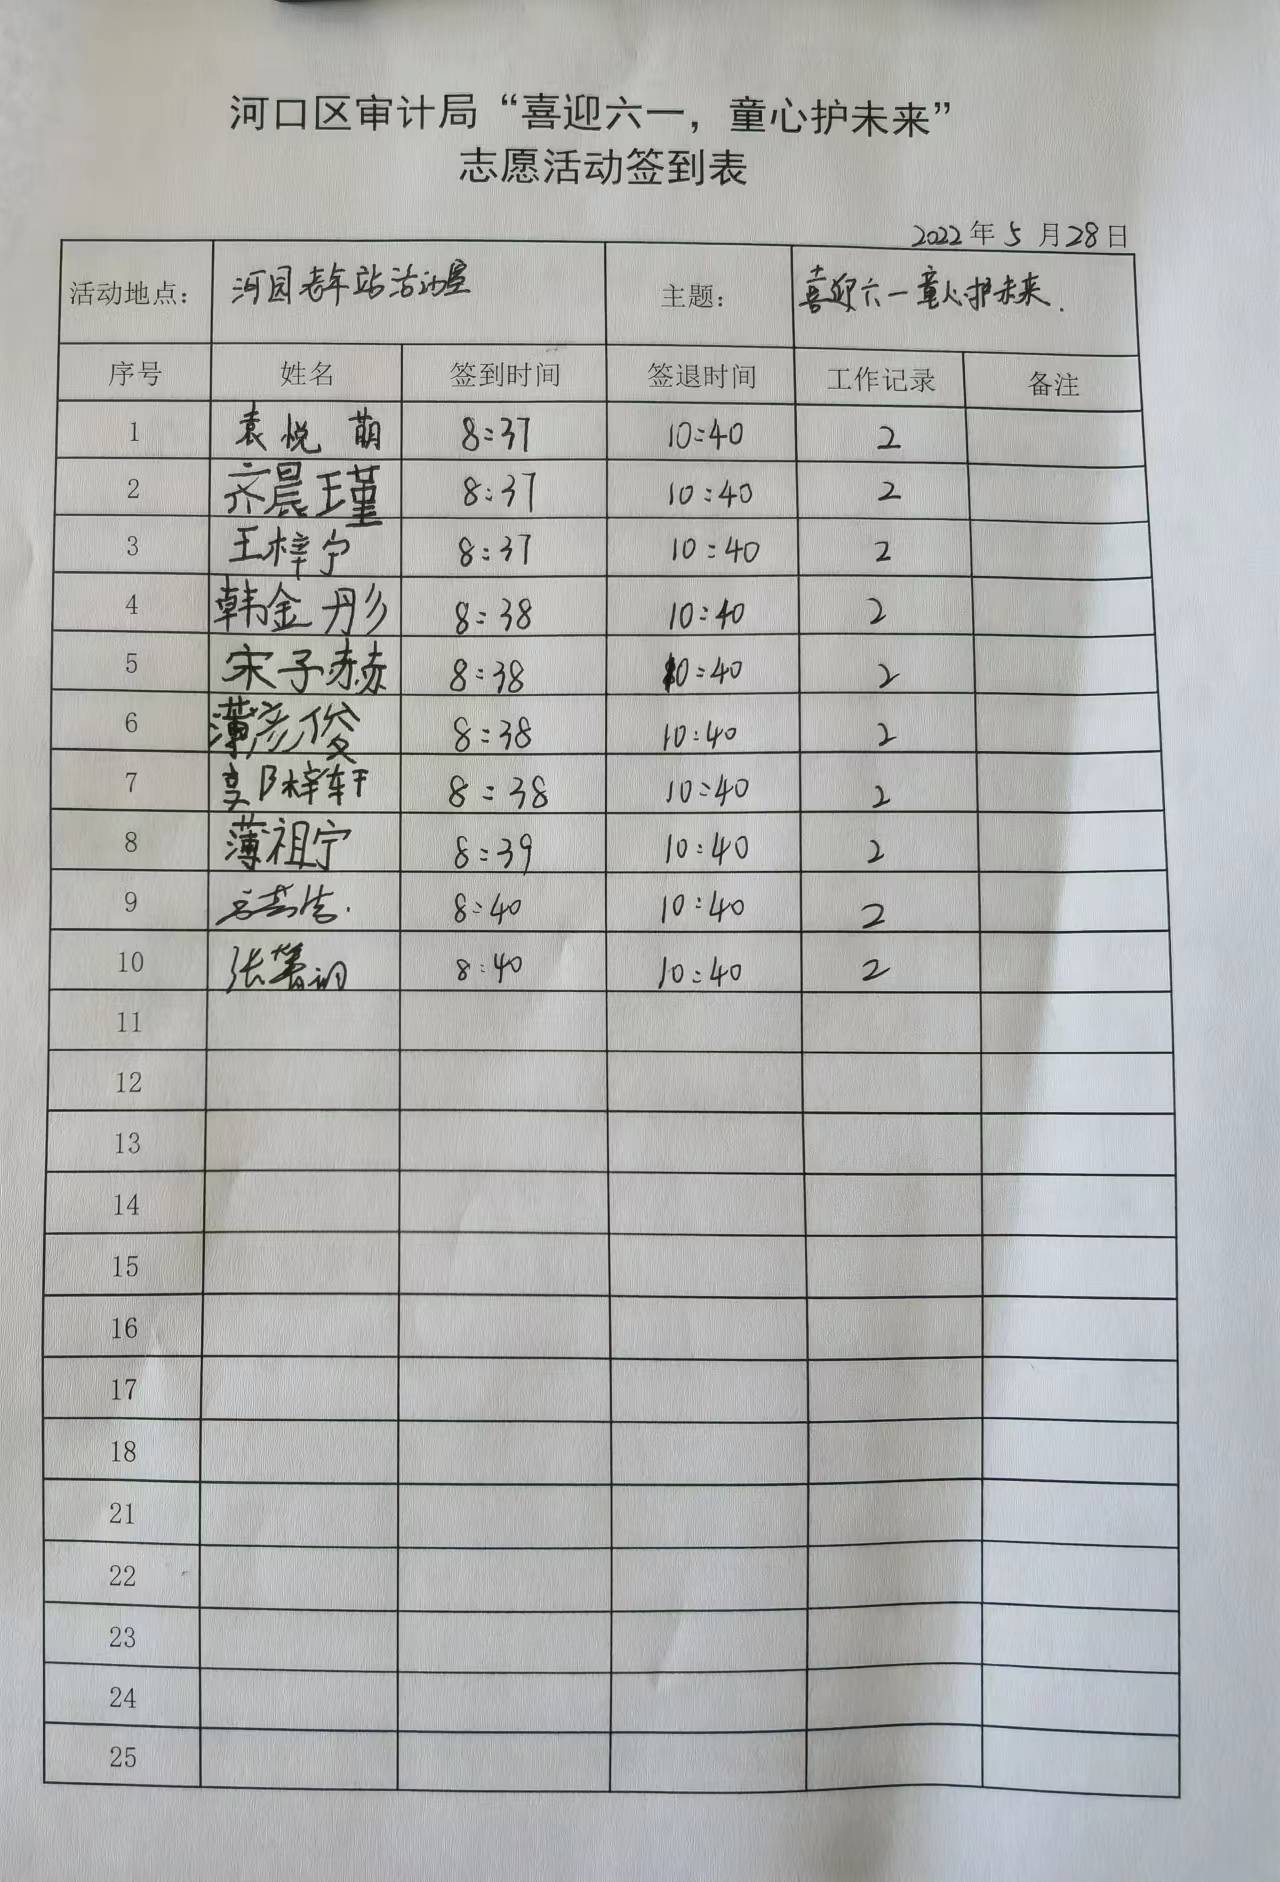 河口区审计局“喜迎六一，童心护未来”
志愿活动签到表
2022年5月28日
活动地点： 河园老年站活动室 主题： 喜迎六一童心护未来.
序号 姓名 签到时间 签退时间 工作记录 备注
1 袁悦萌 8:37 10:40 2
2 齐晨瑾 8:37 10:40 2
3 王梓宁 8:37 10:40 2
4 韩金彤 8:38 10:40 2
5 宋子赫 8:38 10:40 2
6 薄彦俊 8:38 10:40 2
7 郭梓轩 8:38 10:40 2
8 薄祖宁 8:39 10:40 2
9 8:40 10:40 2
10 张 8:40 10:40 2
11
12
13
14
15
16
17
18
21
22
23
24
25